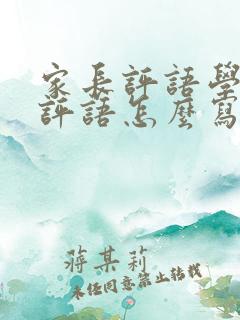 家長評語學
評語怎麼寫
蔣某莉
未經同意禁止轉載